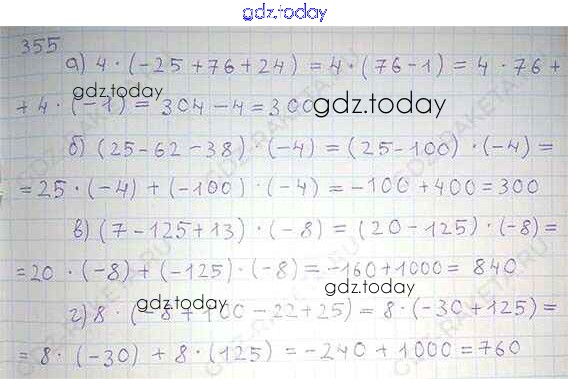 gdz.today
355
а) 4 · (-25 + 76 + 24) = 4 · (76 - 1) = 4 · 76 +
+ 4 · (-1) = 304 - 4 = 300
gdz.today
gdz.today
б) (25 - 62 - 38) · (-4) = (25 - 100) · (-4) =
= 25 · (-4) + (-100) · (-4) = -100 + 400 = 300
в) (7 - 125 + 13) · (-8) = (20 - 125) · (-8) =
= 20 · (-8) + (-125) · (-8) = -160 + 1000 = 840
gdz.today
gdz.today
г) 8 · (-8 + 100 - 22 + 25) = 8 · (-30 + 125) =
= 8 · (-30) + 8 · (125) = -240 + 1000 = 760